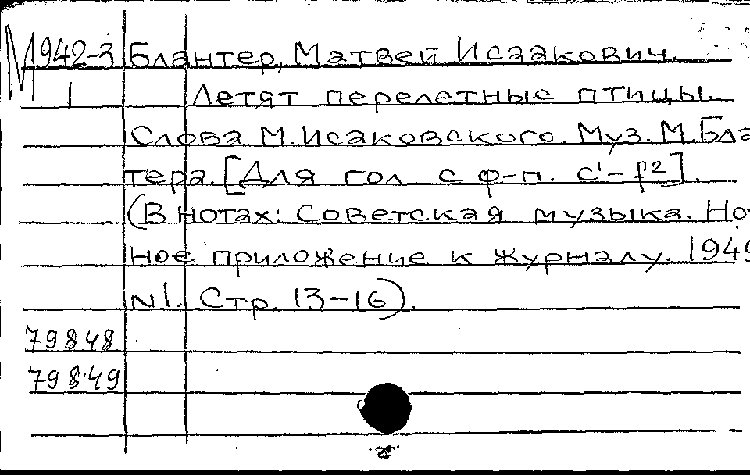 М1942-3 Блантер, Матвей Исаакович.
1 Летят перелетные птицы.
Слова М.Исаковского. Муз. М.Бла
тера. [Для гол с ф-п. c¹-f²].
(В нотах: Советская музыка. Но
ное приложение к журналу. 1949
N1. Стр. 13-16).
79848
79849